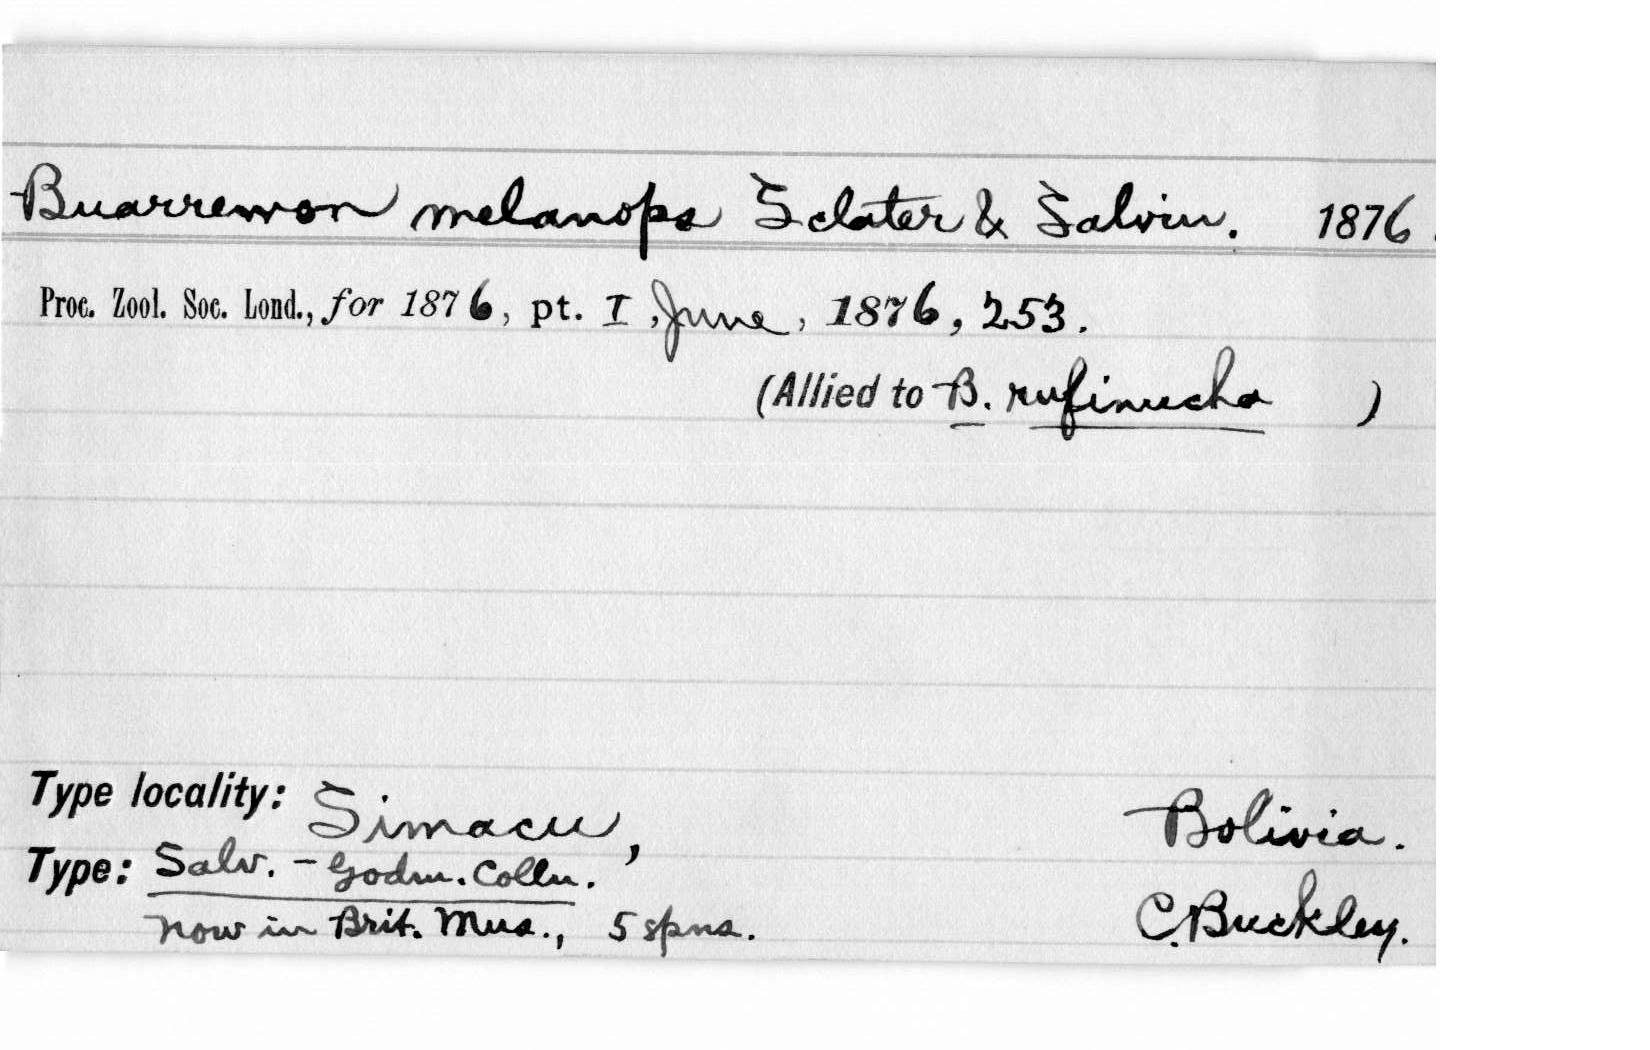 Buarremon melanops Sclater & Salvin. 1876.
Proc. Zool. Soc. Lond., for 1876, pt. I, June, 1876, 253.
(Allied to B. rufinucha )
Type locality: Simacu, Bolivia.
Type: Salv. - Godm. Colln.
now in Brit. Mus., 5 spns. C. Buckley.